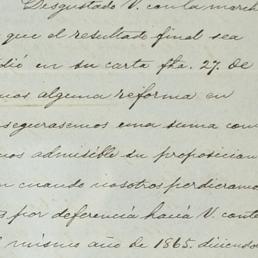 Desgustado V. con la march
que el resultado final sea
dió en su carta fha. 27. de
mos alguna reforma en
segurasemos una suma con
mos admisible su proposicion
n cuando nosotros perdieramo
s por deferencia hacia V. conte
l mismo año de 1865. diciendo